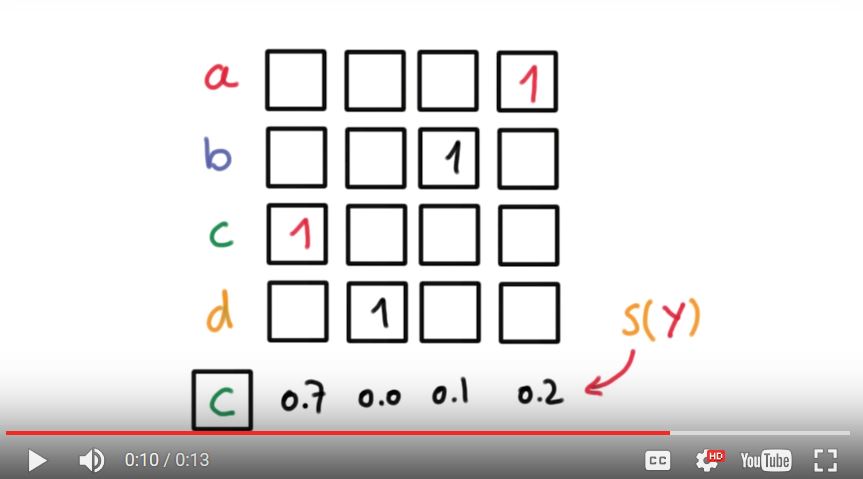 a 1
b 1
c 1
d 1
S(Y)
C 0.7 0.0 0.1 0.2
0:10 / 0:13 CC HD YouTube